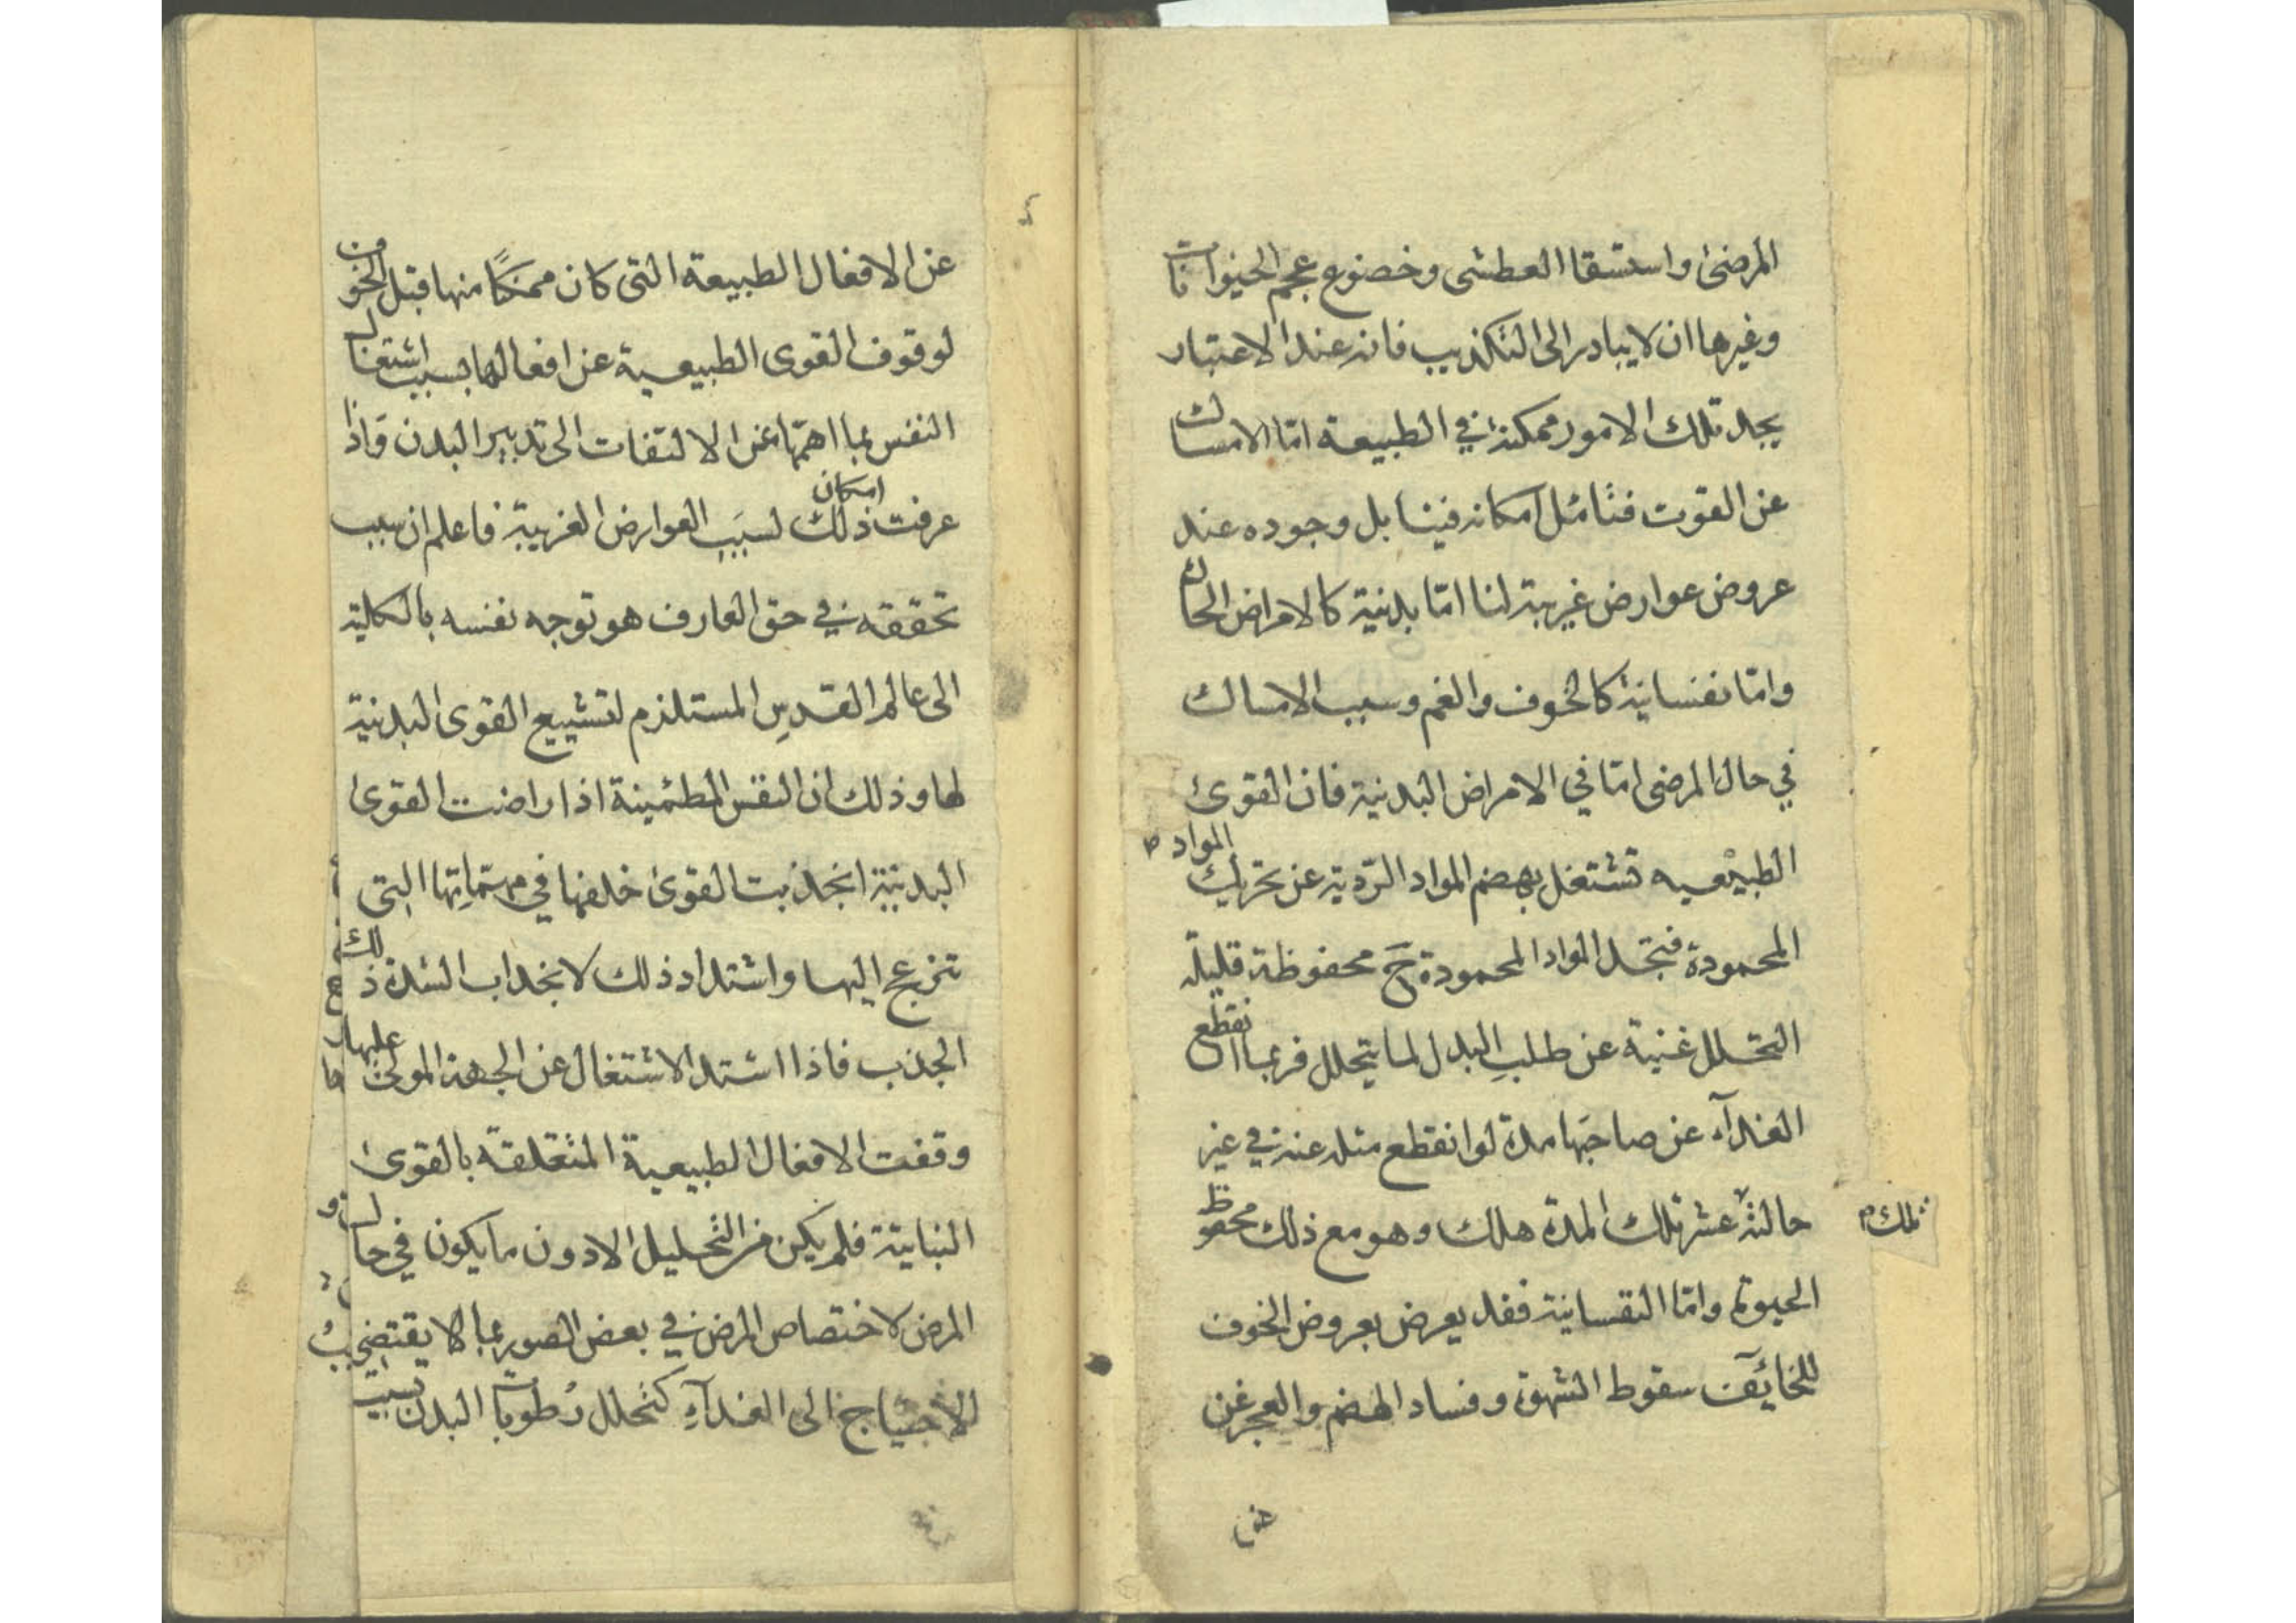 المرضى واستسقا العطشى وخضوع عجم الحيوانات
وغيرها ان لا يبادر الى التكذيب فانه عند الاعتبار
يجد تلك الامور ممكنة في الطبيعة امّا الامساك
عن القوت فتأمّل امكانه فينا بل وجوده عند
عروض عوارض غريبة لنا امّا بدنية كالامراض الحادّ
وامّا نفسانية كالخوف والغم وسبب الامساك
في حال المرضى امّا في الامراض البدنية فان القوى
الطبيعيه تشتغل بهضم المواد الرّدية عن تحريك المواد
المحمودة فتجد المواد المحمودة ح محفوظة قليلة
التحلل غنية عن طلب البدل لما يتحلل فربما انقطع
الغذآء عن صاحبها مدة لو انقطع مثله عنه في غير
حالته عشر تلك المدة هلك وهو مع ذلك محفوظ
تلك
الحيوة وامّا النفسانية فقد يعرض بعروض الخوف
للخائف سقوط الشهوة وفساد الهضم والعجز عن
عن الافعال الطبيعة التى كان ممكنًا منها قبل الخوف
لوقوف القوى الطبيعية عن افعالها بسبب اشتغال
النفس بما اهمّها عن الالتفات الى تدبير البدن وَاذا
عرفت امكان ذلك لسبَبِ العوارض الغريبة فاعلم ان سبب
تحققه في حق العارف هو توجه نفسه بالكلية
الى عالم القدس المستلزم لتشييع القوى البدنية
لها وذلك ان النفس المطمئينة اذا راضت القوى
البدنية انجذبت القوى خلفها في مهمّاتِها التى
تنزعج اليها واشتداد ذلك لانجذاب لشدة ذلك
الجذب فاذا اشتد الاشتغال عن الجهة المولى عليها
وقفت الافعال الطبيعية المتعلقة بالقوى
النباتية فلم يكن من التحليل الا دون ما يكون في حال
المرض لاختصاص المرض في بعض الصور بما لا يقتضى
الاحتياج الى الغذآءِ كتحلل رُطوبات البدن بسبب